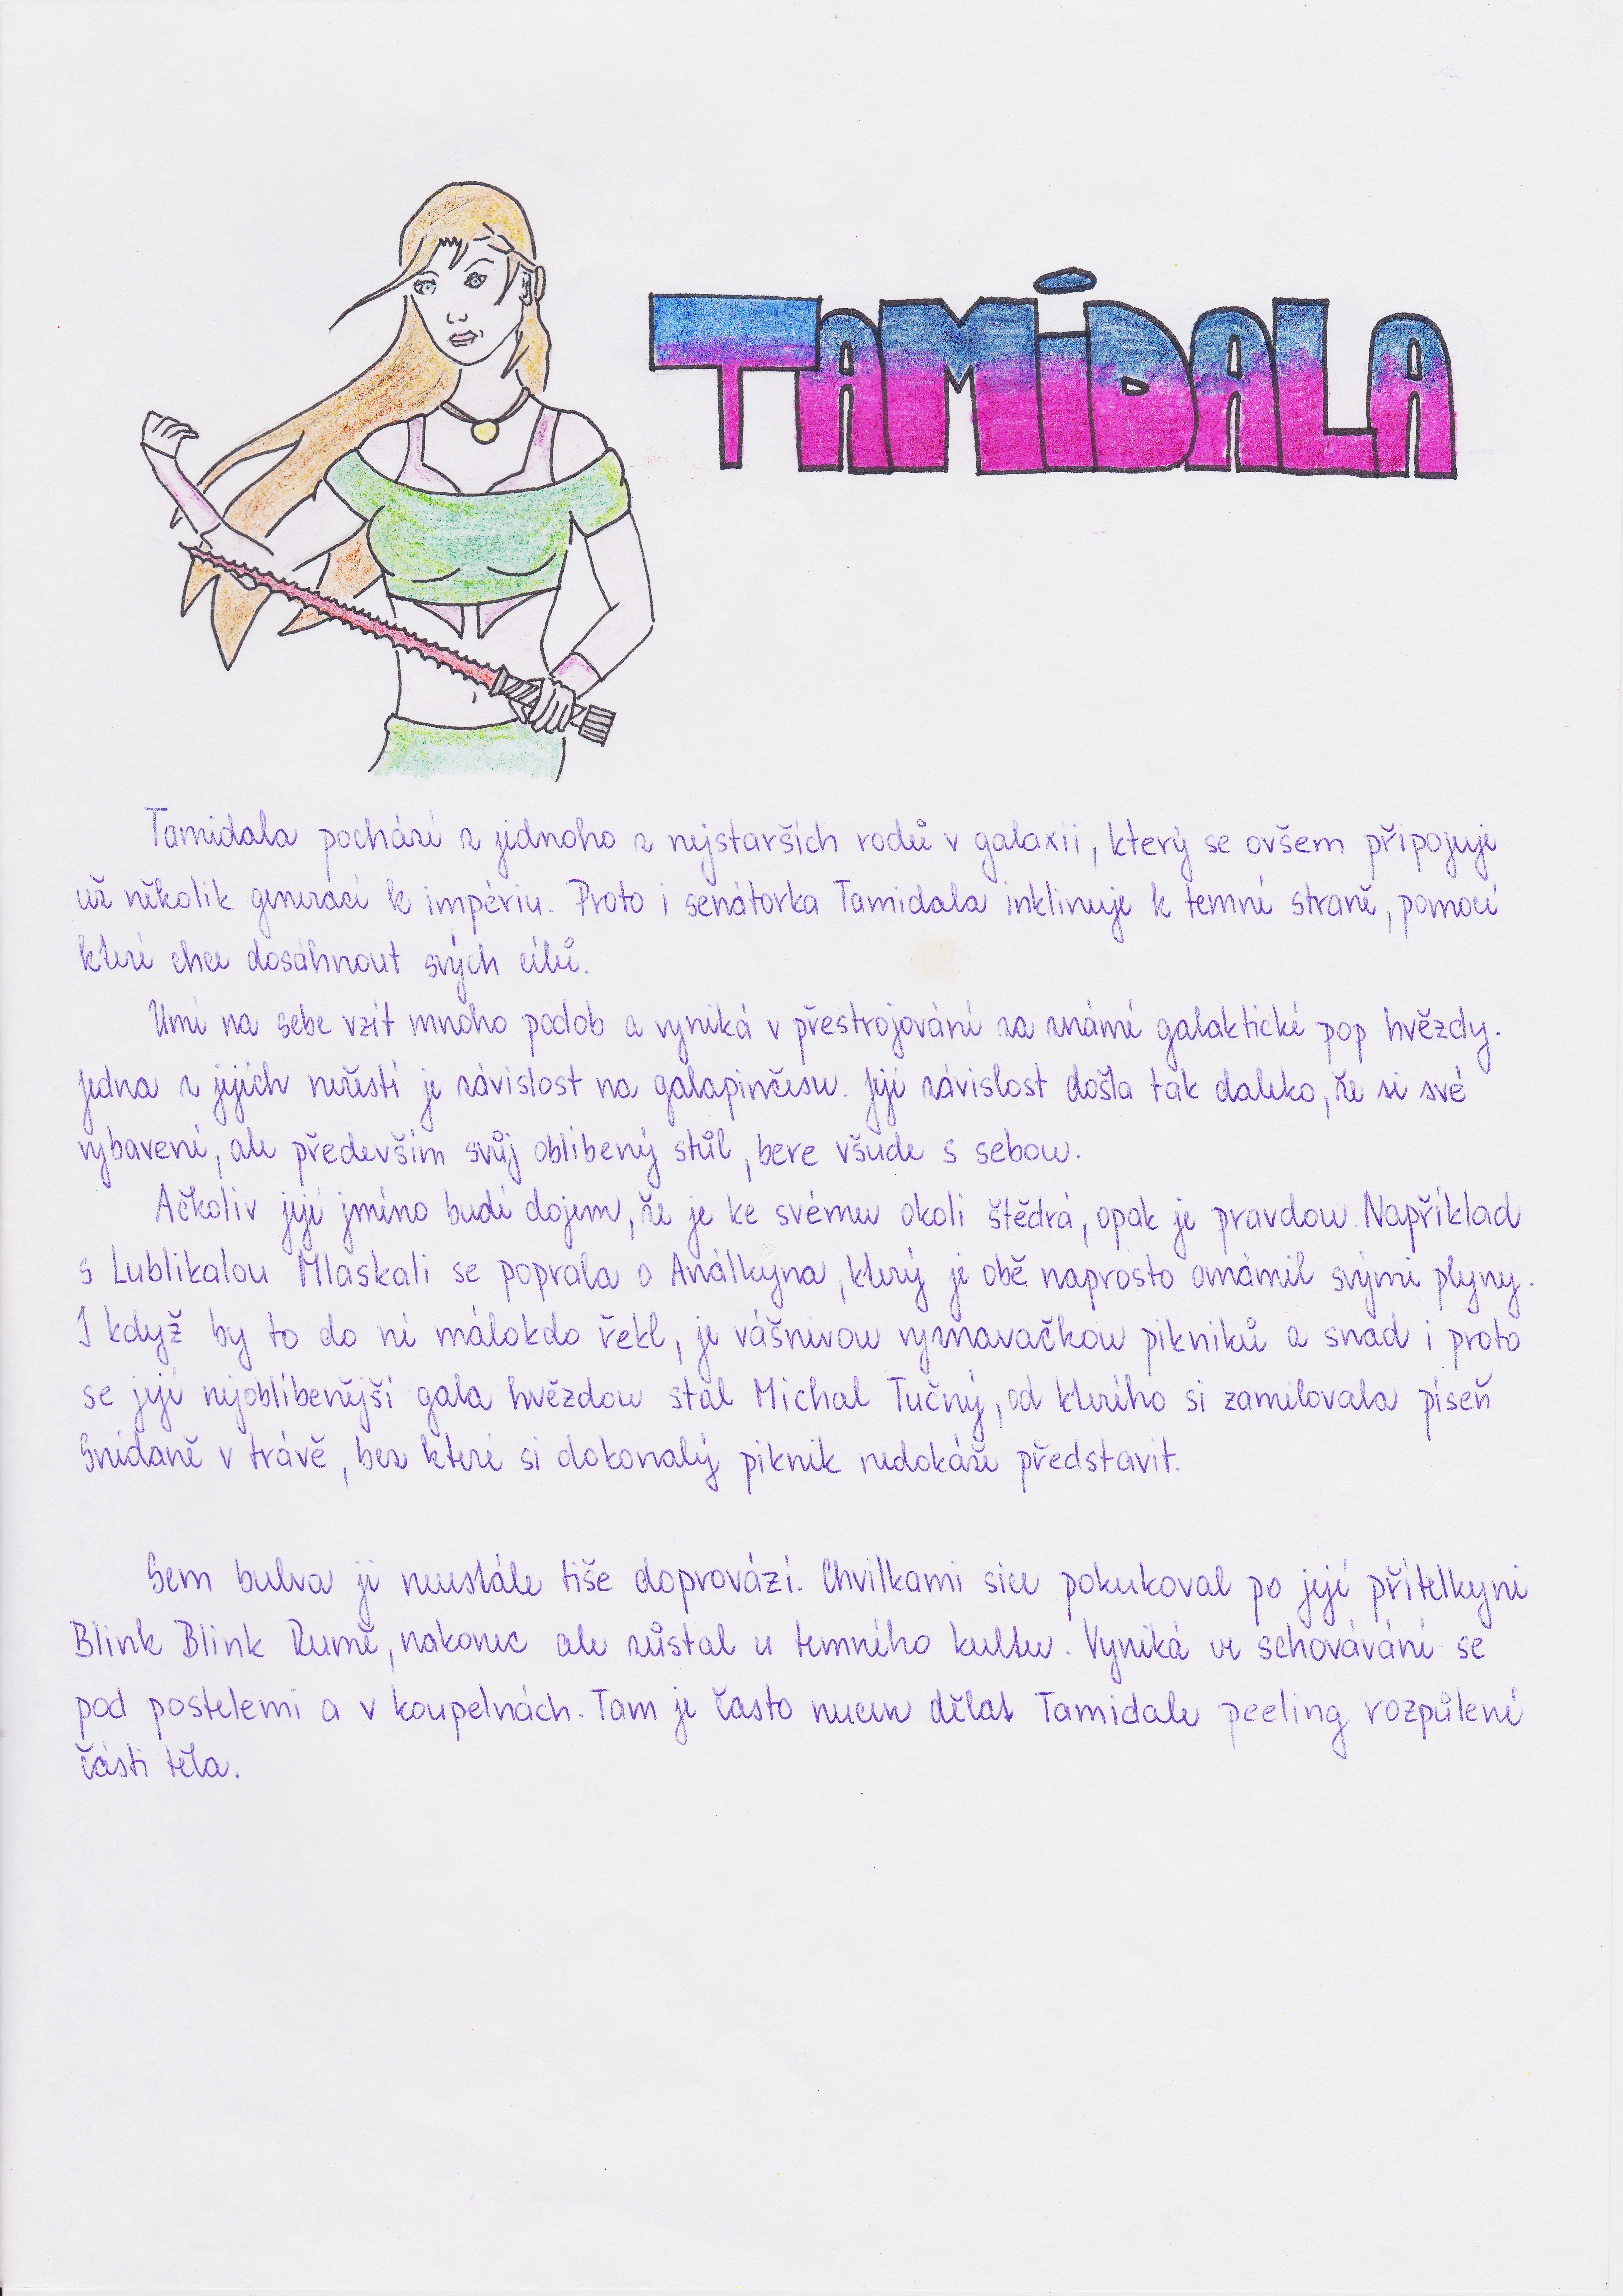 TAMiDALA
Tamidala pochází z jednoho z nejstarších rodů v galaxii, který se ovšem připojuje
už několik generací k impériu. Proto i senátorka Tamidala inklinuje k temné straně, pomocí
které chce dosáhnout svých cílů.
Umí na sebe vzít mnoho podob a vyniká v přestrojování za známé galaktické pop hvězdy.
Jedna z jejich neřestí je závislost na galapinčesu. Její závislost došla tak daleko, že si své
vybavení, ale především svůj oblíbený stůl, bere všude s sebou.
Ačkoliv její jméno budí dojem, že je ke svému okolí štědrá, opak je pravdou. Například
s Lublikalou Mlaskali se poprala o Análkyna, který je obě naprosto omámil svými plyny.
I když by to do ní málokdo řekl, je vášnivou vyznavačkou pikniků a snad i proto
se její nejoblíbenější gala hvězdou stal Michal Tučný, od kterého si zamilovala píseň
Snídaně v trávě, bez které si dokonalý piknik nedokáže představit.
Sem bulva ji neustále tiše doprovází. Chvilkami sice pokukoval po její přítelkyni
Blink Blink Rumě, nakonec ale zůstal u temného kultu. Vyniká ve schovávání se
pod postelemi a v koupelnách. Tam je často nucen dělat Tamidale peeling rozpůlené
části těla.